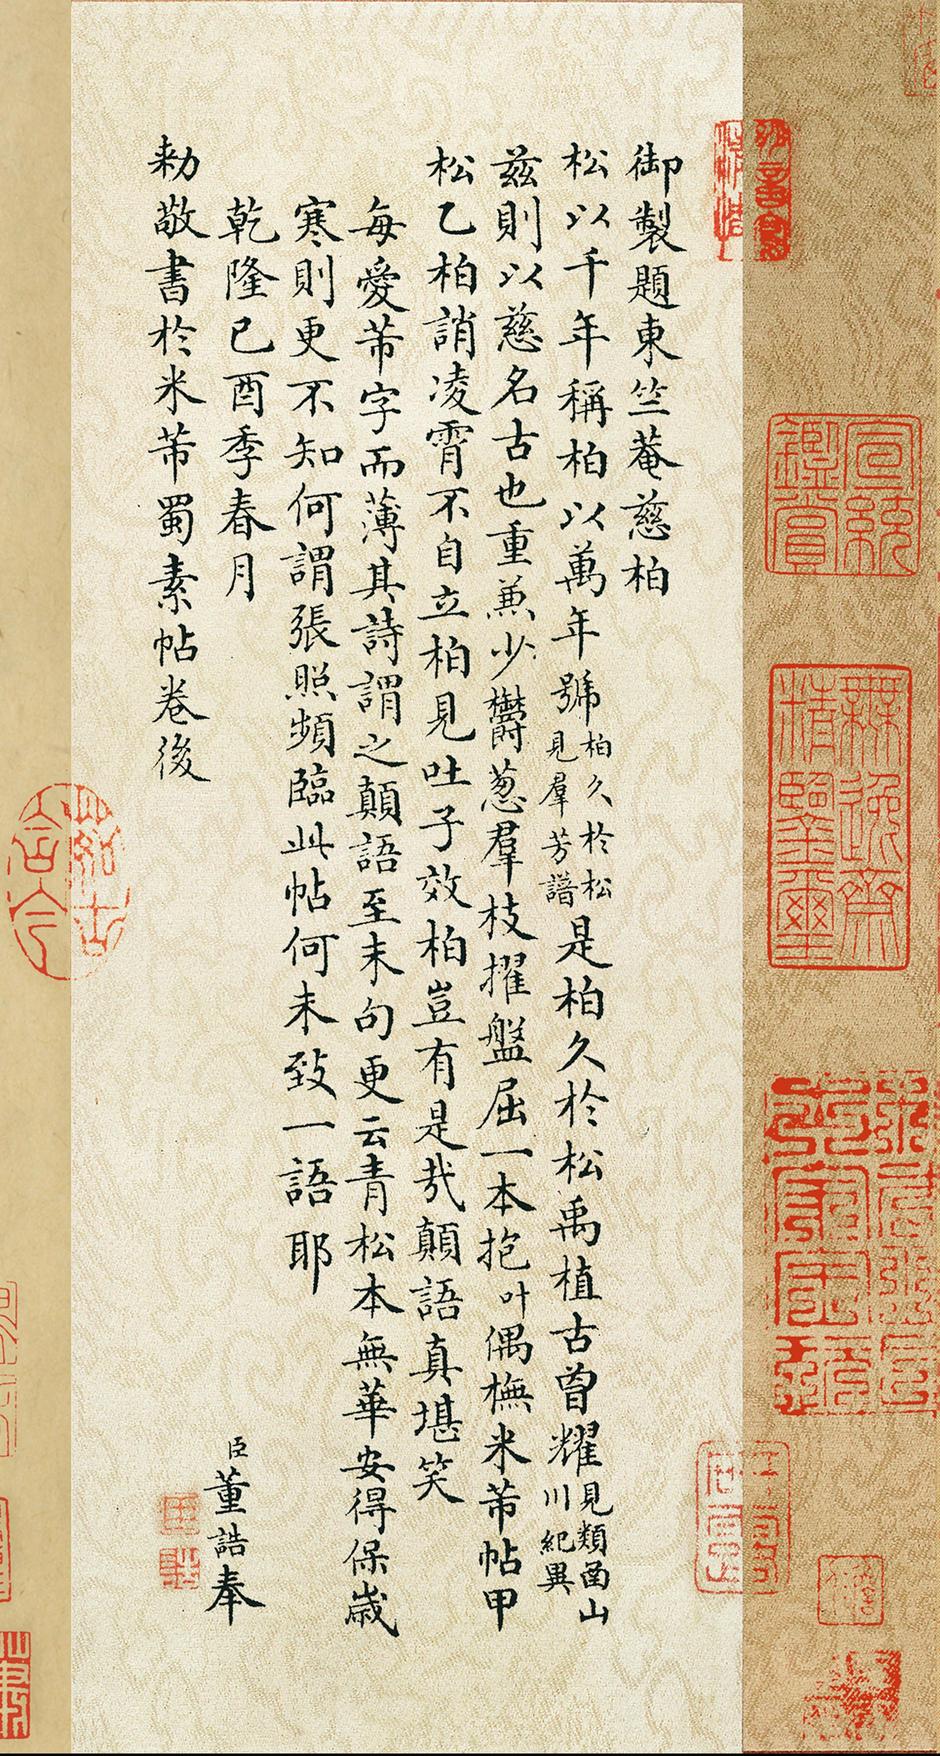 御製題東竺菴慈柏
松以千年稱柏以萬年號柏久於松見羣芳譜是柏久於松禹植古曾耀見類函山川紀異
茲則以慈名古也重兼少鬱葱羣枝擢盤屈一本抱叶偶橅米芾帖甲
松乙柏誚凌霄不自立柏見吐子效柏豈有是哉顛語真堪笑
每愛芾字而薄其詩謂之顛語至末句更云青松本無華安得保歲
寒則更不知何謂張照頻臨此帖何未致一語耶
乾隆己酉季春月
臣董誥奉
勅敬書於米芾蜀素帖卷後
宣統鑑賞
無逸齋精鑒璽